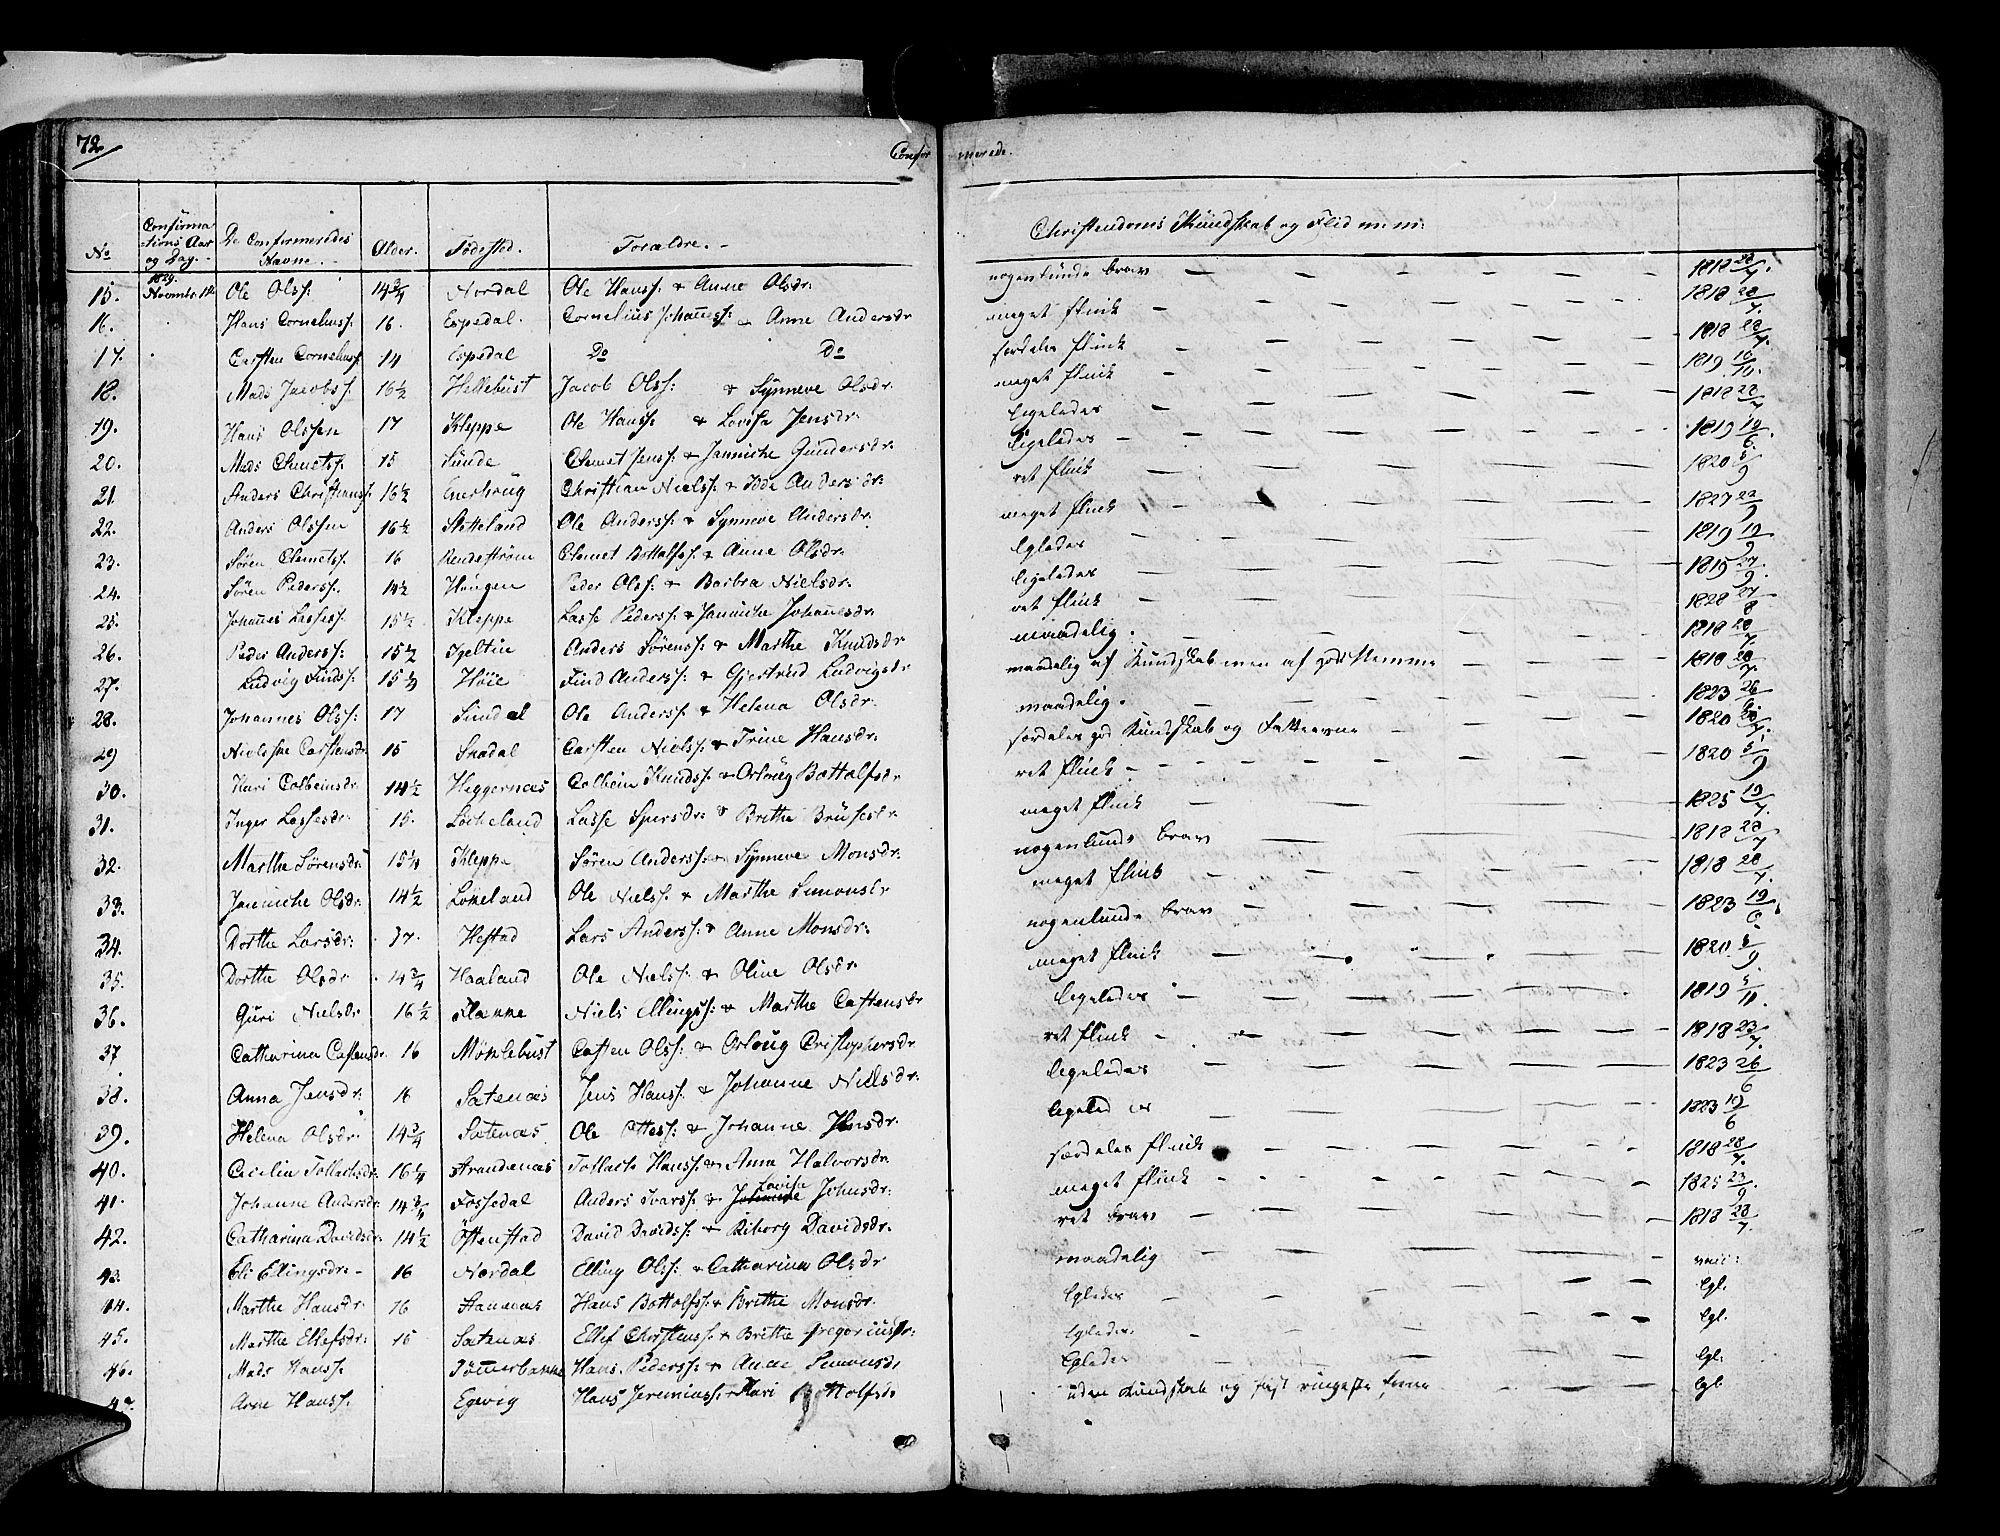 72
Confir merede.
No Confirmations Aar og Dag. De Confirmeredes Navne. Alder. Födested. Foræhldre. Christendoms Kundskab og Flid m: m:
15. 1829. Novemb: 1te Ole Olss: 14 3/4 Nordal Ole Hanss: & Anne Olsdr: nogenlunde brav — 1818 28/7.
16. Hans Corneliuss: 16 Espedal. Cornelius Johañess: & Anne Andersdr meget flink — 1818 28/7.
17. Carsten Corneliuss: 14 Espedal Do Do særdeles flink — 1818 28/7.
18. Mads Jacobss: 16 1/2 Hellebust Jacob Olss: & Synneve Olsdr. meget flink — 1819 16/10.
19. Hans Olssen 17 Kleppe Ole Hanss: & Lovisa Jensdr: ligeledes — 1818 28/7
20. Mads Clemetss. 15 Sunde Clemet Jenss: & Jannicke Gundersdr: ligeledes — 1819 19/6.
21 Anders Christianss: 16 1/2 Christian Nielss: & Anders dr: ret flink — 1820 5/9
22. Anders Olssen 16 1/2 Stetteland Ole Anderss: & Synneve Andersdr: meget flink — 1827 22/9
23. Sören Clemetss. 16 Clemet Bottolfss. & Anne Olsdr: lgledes — 1819 19/9
24. Sören Pederss. 14 1/2 Haugen Peder Olss: & Barbra Nielsdr: ligeledes — 1815 27/9.
25. Johañes Lasses: 15 1/2 Kleppe Lasse Pederss: & Jannicke Johañesdr. ret flink — 1828 27/8
26. Peder Anderss: 15 1/2 Anders Sörenss: & Marthe Knudsdr maadelig. — 1818 28/7
27. Ludvig Finds: 15 1/4 Höie Find Anderss: & Gjertrud Ludvigsdr maadelig af Kundskab men af god Nemme — 1818 28/7.
28. Johannes Olss: 17 Sundal Ole Anderss: & Helena Olsdr: maadelig. 1823 26/6.
29 Carstensdr. 15 Carsten Nielss: & Trine Hansdr: særdeles god Kundskab og — 1820 28/7.
30. Kari Colbeinsdr. 14 1/2 Heggernæs Colbein Knudss: & Orloug Bottolfsdr ret flink — 1820 5/9
31. Inger Lassesdr: 15. Löckeland Lasse & Brithe meget flink — 1825 19/7.
32. Marthe Sörensdr: 15 1/4 Kleppe Sören Anderss: & Synneve Monsdr: nogenlunde brav — 1818 28/7
33. Jannicke Olsdr. 14 1/2 Lökeland Ole Nielss: & Marthe Simonsdr meget flink — 1818 28/7.
34. Dorthe Larsdr: 17. Hestad Lars Anderss: & Anne Monsdr: nogenlunde brav — 1823 19/6
35. Dorthe Olsdr 14 3/4 Haaland Ole Nielss: & Oline Olsdr. meget flink — 1820 5/9
36. Guri Nielsdr 16 1/2 Flanne Niels Ellingss: & Marthe Castensdr ligeledes — 1819 5/11.
37 Catharina Castensdr. 16 Möhlebust Casten Olss: & Orloug Cristophersdr ret flink — 1818 23/7.
38. Anna Jensdr: 16 Satenæs Jens Hanss: & Johanne Nielsdr: ligeledes — 1823 26/6
39. Helena Olsdr. 14 3/4 Satenæs Ole Ottess: & Johanne Jensdr: ligeledes — 1823 19/6
40. Cicilia Tollachsdr. 16 1/4 Strandenæs Tollach Hanss: & Anna Halvorsdr særdeles flink — 1818 28/7.
41. Johanne Andersdr 14 3/4 Fossedal Anders Ivarss: & Johanne Lovisa Johnsdr: meget flink — 1825 23/9.
42. Catharina Davidsdr 14 1/2 Östenstad David Davidss: & Riborg Davidsdr. ret brav — 1818 28/7.
43. Eli Elingsdr. 16 Nordal Elling Olss: & Catharina Olsdr maadelig — vacc:
44. Marthe Hansdr. 16 Stavenæs Hans Bottolfss: & Brithe Monsdr: lgledes — lgl.
45. Marthe Ellefsdr: 15 Satenæs Ellef Christenss: & Brithe Gregoriusdr: lgledes. — lgl.
46. Mads Hanss. Hans. Pederss: & Anne Simonsdr lgledes — lgl.
47 Arne Hanss. Egevig Hans Jeremiass: & Kari Bottolfsdr uden Kundskab og — lgl.